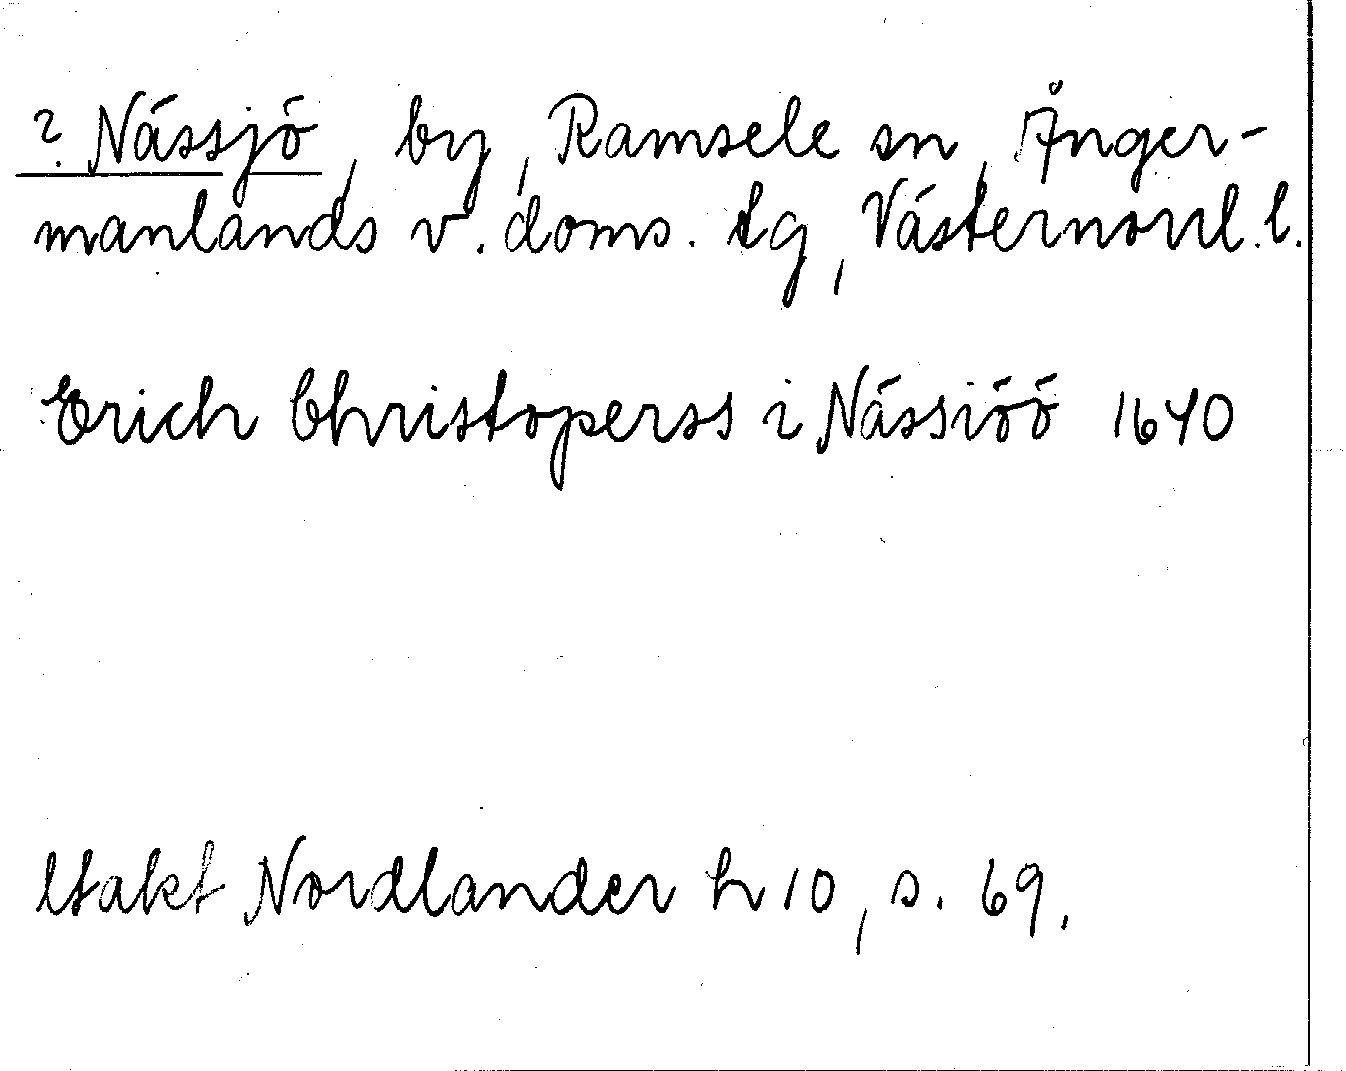 ? Nässjö, by, Ramsele sn, Ånger-
manlands v. doms. tg, Västernorrl. l.
Erich Christoperss i Nässiöö 1640
Nordlander h 10, s. 69.